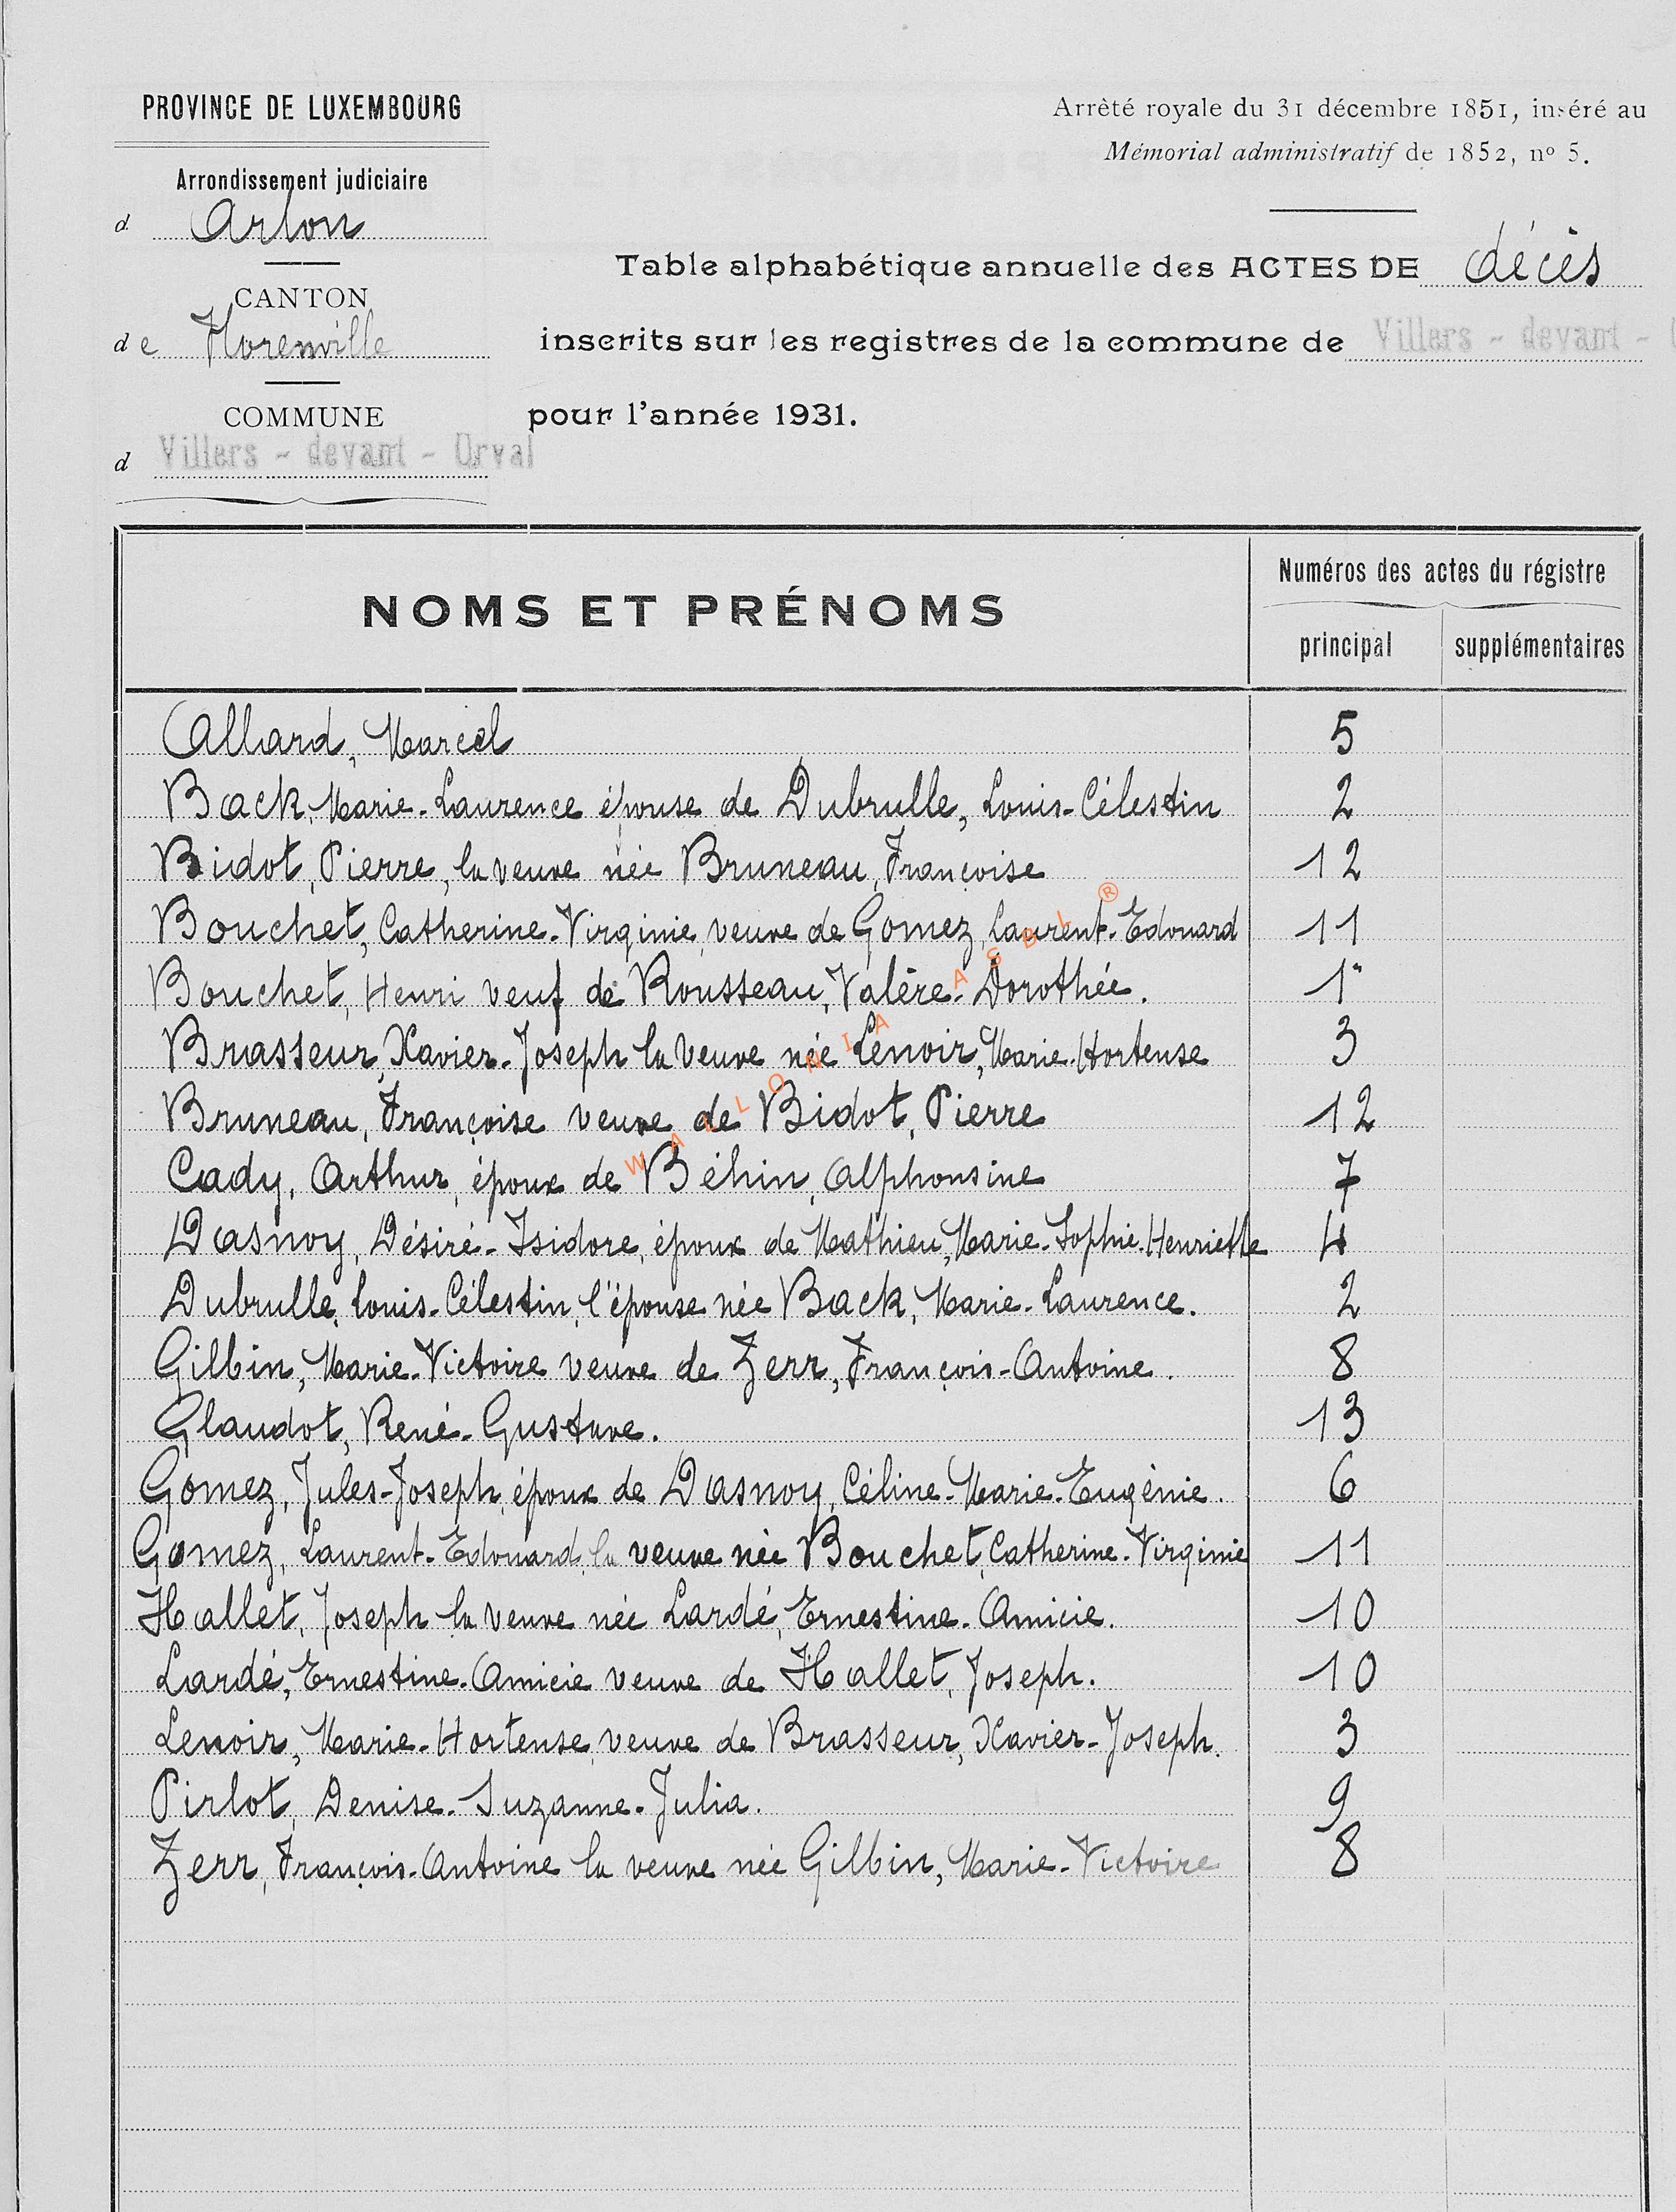 PROVINCE DE LUXEMBOURG
Arrondissement judiciaire
d Arlon
CANTON
de Florenville
COMMUNE
d Villers - devant - Orval
Arrêté royale du 31 décembre 1851, inséré au
Mémorial administratif de 1852, nº 5.
Table alphabétique annuelle des ACTES DE décès
inscrits sur les registres de la commune de Villers - devant -
pour l'année 1931.
NOMS ET PRÉNOMS
Numéros des actes du régistre
principal supplémentaires
Allard, Marcel 5
Back, Marie-Laurence épouse de Dubrulle, Louis-Célestin 2
Bidot, Pierre, la veuve née Bruneau, Françoise 12
Bouchet, Catherine-Virginie, veuve de Gomez, Laurent-Edouard 11
Bouchet, Henri veuf de Rousseau, Valère-Dorothée. 1
Brasseur, Xavier-Joseph la veuve née Lenoir, Marie-Hortense 3
Bruneau, Françoise veuve de Bidot, Pierre 12
Cady, Arthur, époux de Béhin, Alphonsine 7
Dasnoy, Désiré-Isidore, époux de Mathieu, Marie-Sophie-Henriette 4
Dubrulle, Louis-Célestin, l'épouse née Back, Marie-Laurence. 2
Gilbin, Marie-Victoire veuve de Zerr, François-Antoine. 8
Glaudot, René-Gustave. 13
Gomez, Jules-Joseph, époux de Dasnoy, Céline-Marie-Eugénie. 6
Gomez, Laurent-Edouard, la veuve née Bouchet, Catherine-Virginie 11
Hallet, Joseph la veuve née Lardé, Ernestine-Amicie. 10
Lardé, Ernestine-Amicie veuve de Hallet, Joseph. 10
Lenoir, Marie-Hortense, veuve de Brasseur, Xavier-Joseph. 3
Pirlot, Denise-Suzanne-Julia. 9
Zerr, François-Antoine la veuve née Gilbin, Marie-Victoire 8
WALLONIA ASBL ®